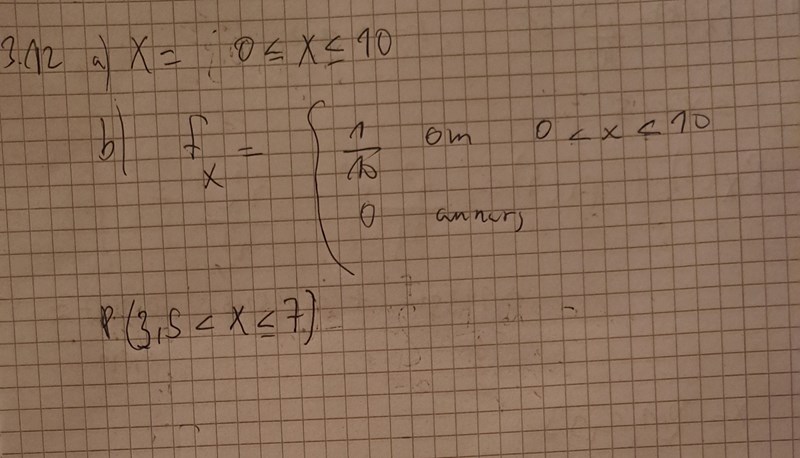 3.12 a) X = ; 0 ≤ X ≤ 10
b) f_X = { 1/10 om 0 < x ≤ 10
0 annars
P(3,5 < X ≤ 7)